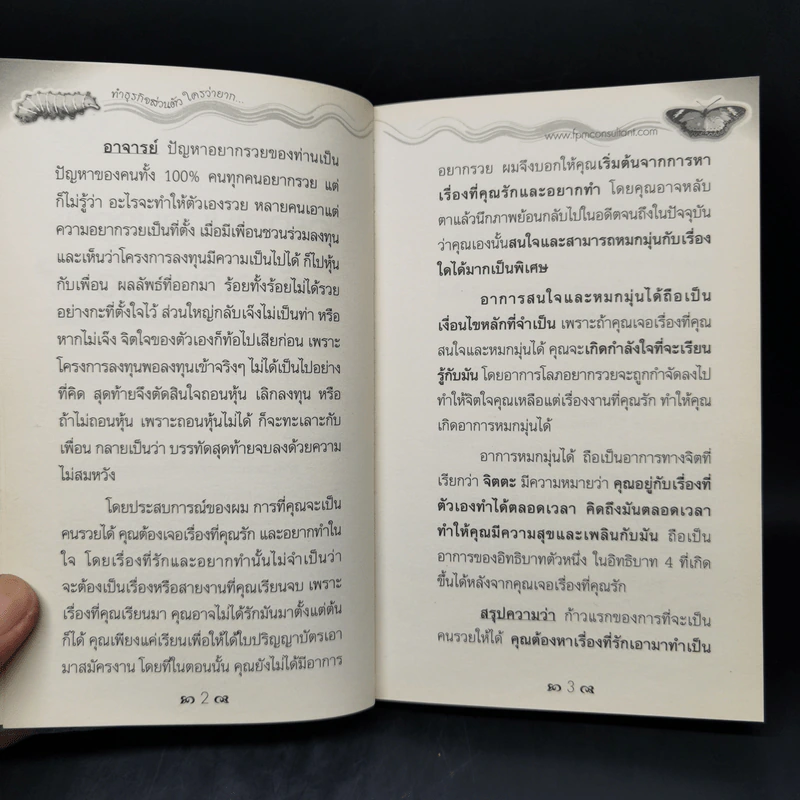 ทำธุรกิจส่วนตัว ใครว่ายาก...
อาจารย์ ปัญหาอยากรวยของท่านเป็น
ปัญหาของคนทั้ง 100% คนทุกคนอยากรวย แต่
ก็ไม่รู้ว่า อะไรจะทำให้ตัวเองรวย หลายคนเอาแต่
ความอยากรวยเป็นที่ตั้ง เมื่อมีเพื่อนชวนร่วมลงทุน
และเห็นว่าโครงการลงทุนมีความเป็นไปได้ ก็ไปหุ้น
กับเพื่อน ผลลัพธ์ที่ออกมา ร้อยทั้งร้อยไม่ได้รวย
อย่างกะที่ตั้งใจไว้ ส่วนใหญ่กลับเจ๊งไม่เป็นท่า หรือ
หากไม่เจ๊ง จิตใจของตัวเองก็ท้อไปเสียก่อน เพราะ
โครงการลงทุนพอลงทุนเข้าจริงๆ ไม่ได้เป็นไปอย่าง
ที่คิด สุดท้ายจึงตัดสินใจถอนหุ้น เลิกลงทุน หรือ
ถ้าไม่ถอนหุ้น เพราะถอนหุ้นไม่ได้ ก็จะทะเลาะกับ
เพื่อน กลายเป็นว่า บรรทัดสุดท้ายจบลงด้วยความ
ไม่สมหวัง
โดยประสบการณ์ของผม การที่คุณจะเป็น
คนรวยได้ คุณต้องเจอเรื่องที่คุณรัก และอยากทำใน
ใจ โดยเรื่องที่รักและอยากทำนั้นไม่จำเป็นว่า
จะต้องเป็นเรื่องหรือสายงานที่คุณเรียนจบ เพราะ
เรื่องที่คุณเรียนมา คุณอาจไม่ได้รักมันมาตั้งแต่ต้น
ก็ได้ คุณเพียงแค่เรียนเพื่อให้ได้ใบปริญญาบัตรเอา
มาสมัครงาน โดยที่ในตอนนั้น คุณยังไม่ได้มีอาการ
2
www.fpmconsultant.com
อยากรวย ผมจึงบอกให้คุณเริ่มต้นจากการหา
เรื่องที่คุณรักและอยากทำ โดยคุณอาจหลับ
ตาแล้วนึกภาพย้อนกลับไปในอดีตจนถึงในปัจจุบัน
ว่าคุณเองนั้นสนใจและสามารถหมกมุ่นกับเรื่อง
ใดได้มากเป็นพิเศษ
อาการสนใจและหมกมุ่นได้ถือเป็น
เงื่อนไขหลักที่จำเป็น เพราะถ้าคุณเจอเรื่องที่คุณ
สนใจและหมกมุ่นได้ คุณจะเกิดกำลังใจที่จะเรียน
รู้กับมัน โดยอาการโลภอยากรวยจะถูกกำจัดลงไป
ทำให้จิตใจคุณเหลือแต่เรื่องงานที่คุณรัก ทำให้คุณ
เกิดอาการหมกมุ่นได้
อาการหมกมุ่นได้ ถือเป็นอาการทางจิตที่
เรียกว่า จิตตะ มีความหมายว่า คุณอยู่กับเรื่องที่
ตัวเองทำได้ตลอดเวลา คิดถึงมันตลอดเวลา
ทำให้คุณมีความสุขและเพลินกับมัน ถือเป็น
อาการของอิทธิบาทตัวหนึ่ง ในอิทธิบาท 4 ที่เกิด
ขึ้นได้หลังจากคุณเจอเรื่องที่คุณรัก
สรุปความว่า ก้าวแรกของการที่จะเป็น
คนรวยให้ได้ คุณต้องหาเรื่องที่รักเอามาทำเป็น
3